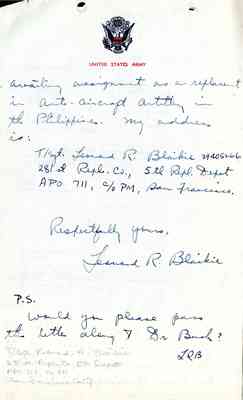 UNITED STATES ARMY
awaiting assignment as a replacement
in anti-aircraft artillery in
the Philippines. My address
is:
T/Sgt. Leonard R. Blaikie
281st Repl. Co., 5th Repl. Depot
APO 711, c/o PM, San Francisco.
Respectfully yours,
Leonard R. Blaikie
P.S.
Would you please pass
this letter along to Dr Bush?
LRB